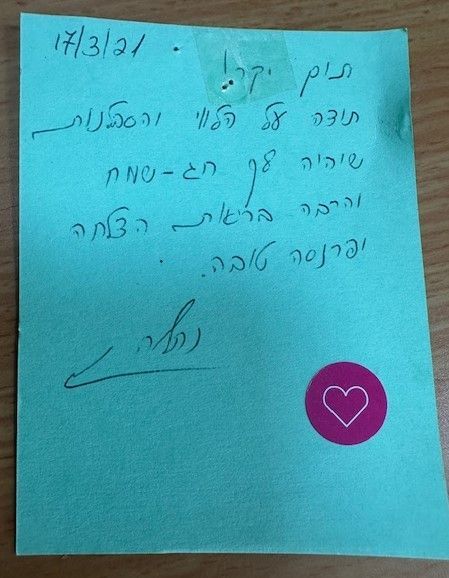 17/3/21
תום יקר!
תודה על הלווי והסבלנות
שיהיה לך חג-שמח
והרבה בריאות הצלחה
ופרנסה טובה.